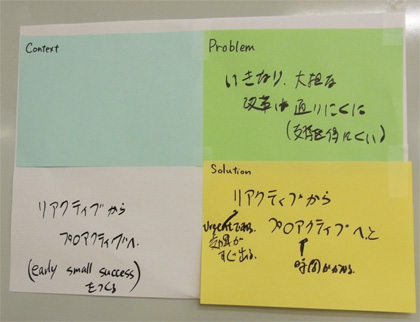 Context
Problem
いきなり、大胆な
改革は通りにくい
(支持を得にくい)
リアクティブから
プロアクティブへ.
(early small success)
をつくる
Solution
リアクティブから
プロアクティブへ、と
urgentである.
効果が
すぐ出る.
時間がかかる.